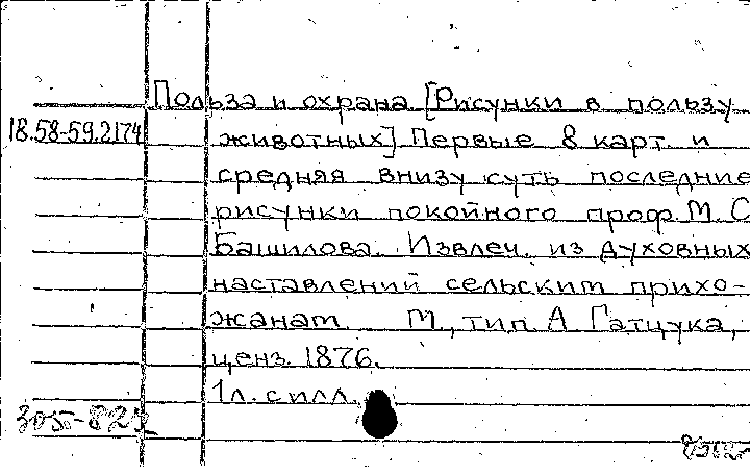 Польза и охрана [Рисунки в пользу
18.58-59.2174
животных] Первые 8 карт. и
средняя внизу суть последние
рисунки покойного проф. М. С.
Башилова. Извлеч. из духовных
наставлений сельским прихо-
жанам. М., тип. А. Гатцука,
ценз. 1876.
1 л. с илл.